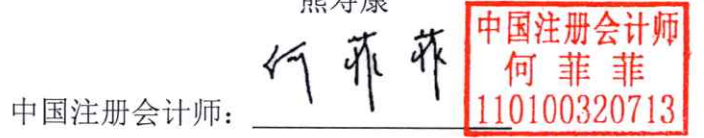 熊寿康
中国注册会计师：何菲菲
中国注册会计师
何菲菲
110100320713